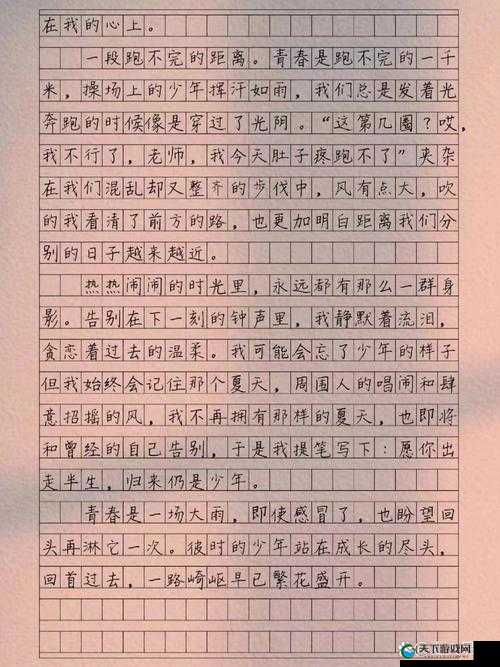 在我的心上。
一段跑不完的距离。青春是跑不完的一千
米，操场上的少年挥汗如雨，我们总是发着光
奔跑的时候像是穿过了光阴。“这第几圈？哎，
我不行了，老师，我今天肚子疼跑不了”夹杂
在我们混乱却又整齐的步伐中，风有点大，吹
的我看清了前方的路，也更加明白距离我们分
别的日子越来越近。
热热闹闹的时光里，永远都有那么一群身
影。告别在下一刻的钟声里，我静默着流泪，
贪恋着过去的温柔。我可能会忘了少年的样子
但我始终会记住那个夏天，周围人的唱闹和肆
意招摇的风，我不再拥有那样的夏天，也即将
和曾经的自己告别，于是我提笔写下：愿你出
走半生，归来仍是少年。
青春是一场大雨，即使感冒了，也盼望回
头再淋它一次。彼时的少年站在成长的尽头，
回首过去，一路崎岖早已繁花盛开。
天下游戏网